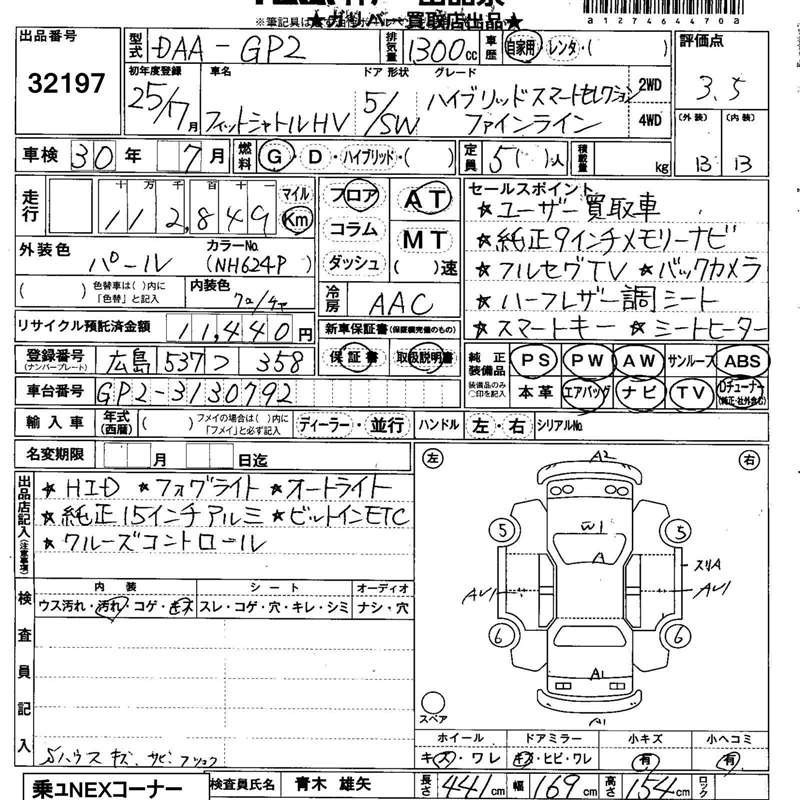 ★ガリバー買取店出品★
A1274644704
出品番号
32197
型式 DAA-GP2
排気量 1300cc
車歴 自家用・レンタ・( )
評価点
3.5
(外装) (内装)
B B
初年度登録 車名 ドア 形状 グレード
25/7月 フィットシャトルHV 5/SW ハイブリッドスマートセレクション
ファインライン
2WD
4WD
車検 30年 7月
燃料 G・D・ハイブリッド・( )
定員 5( )人
積載量 kg
走行 十万千百十一
112,849
マイル
Km
フロア
コラム
ダッシュ
AT
MT
( )速
セールスポイント
★ユーザー買取車
★純正9インチメモリーナビ
★フルセグTV ★バックカメラ
★ハーフレザー調シート
★スマートキー ★シートヒーター
外装色 カラーNo.
パール (NH624P)
( ) 色替車は( )内に「色替」と記入
内装色
冷房 AAC
リサイクル預託済金額 11,440円
新車保証書(保証継続完備のもの)
保証書 取扱説明書
登録番号(ナンバープレート) 広島 537 つ 358
車台番号 GP2-3130792
純正装備品 装備品のみ○印を記入
PS PW AW サンルーフ ABS
本革 エアバッグ ナビ TV Dチューナー(純正・社外含む)
輸入車 年式(西暦) ( ) フメイの場合は( )内に「フメイ」と必ず記入
ディーラー・並行 ハンドル 左・右 シリアルNo.
名変期限 月 日迄
出品店記入(注意事項)
★HID ★フォグライト ★オートライト
★純正15インチアルミ ★ビットインETC
★クルーズコントロール
左 右
A2
5 W1 5
A
スリA
AU1 AU1
6 6
A1
スペア
A1
検査員記入
内装 シート オーディオ
ウス汚れ・汚れ・コゲ・キズ スレ・コゲ・穴・キレ・シミ ナシ・穴
ホイール ドアミラー 小キズ 小ヘコミ
キズ・ワレ キズ・ヒビ・ワレ 有 有
乗ュNEXコーナー
検査員氏名 青木 雄矢
長さ 441cm 幅 169cm 高さ 154cm ロック